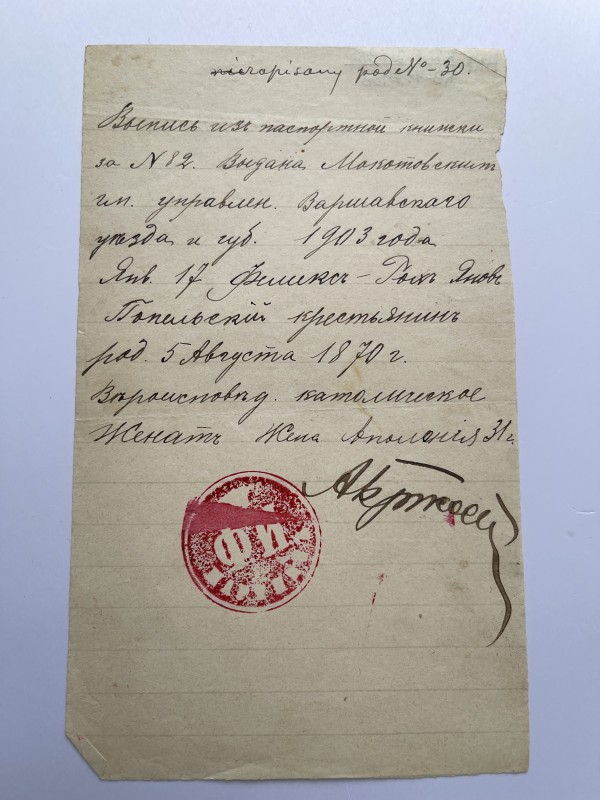 pod No-30.
Выпись изъ паспортной книжки
за N82. Выдана Мокотовскимъ
гм. управлен. Варшавского
уѣзда и губ. 1903 года
Янв. 17 Феликсъ-Рохъ Яновъ
Попельскій крестьянинъ
род. 5 Августа 1870 г.
Вѣроисповѣд. католическое
Женатъ Жена Аполонія 31 г.
ФИ